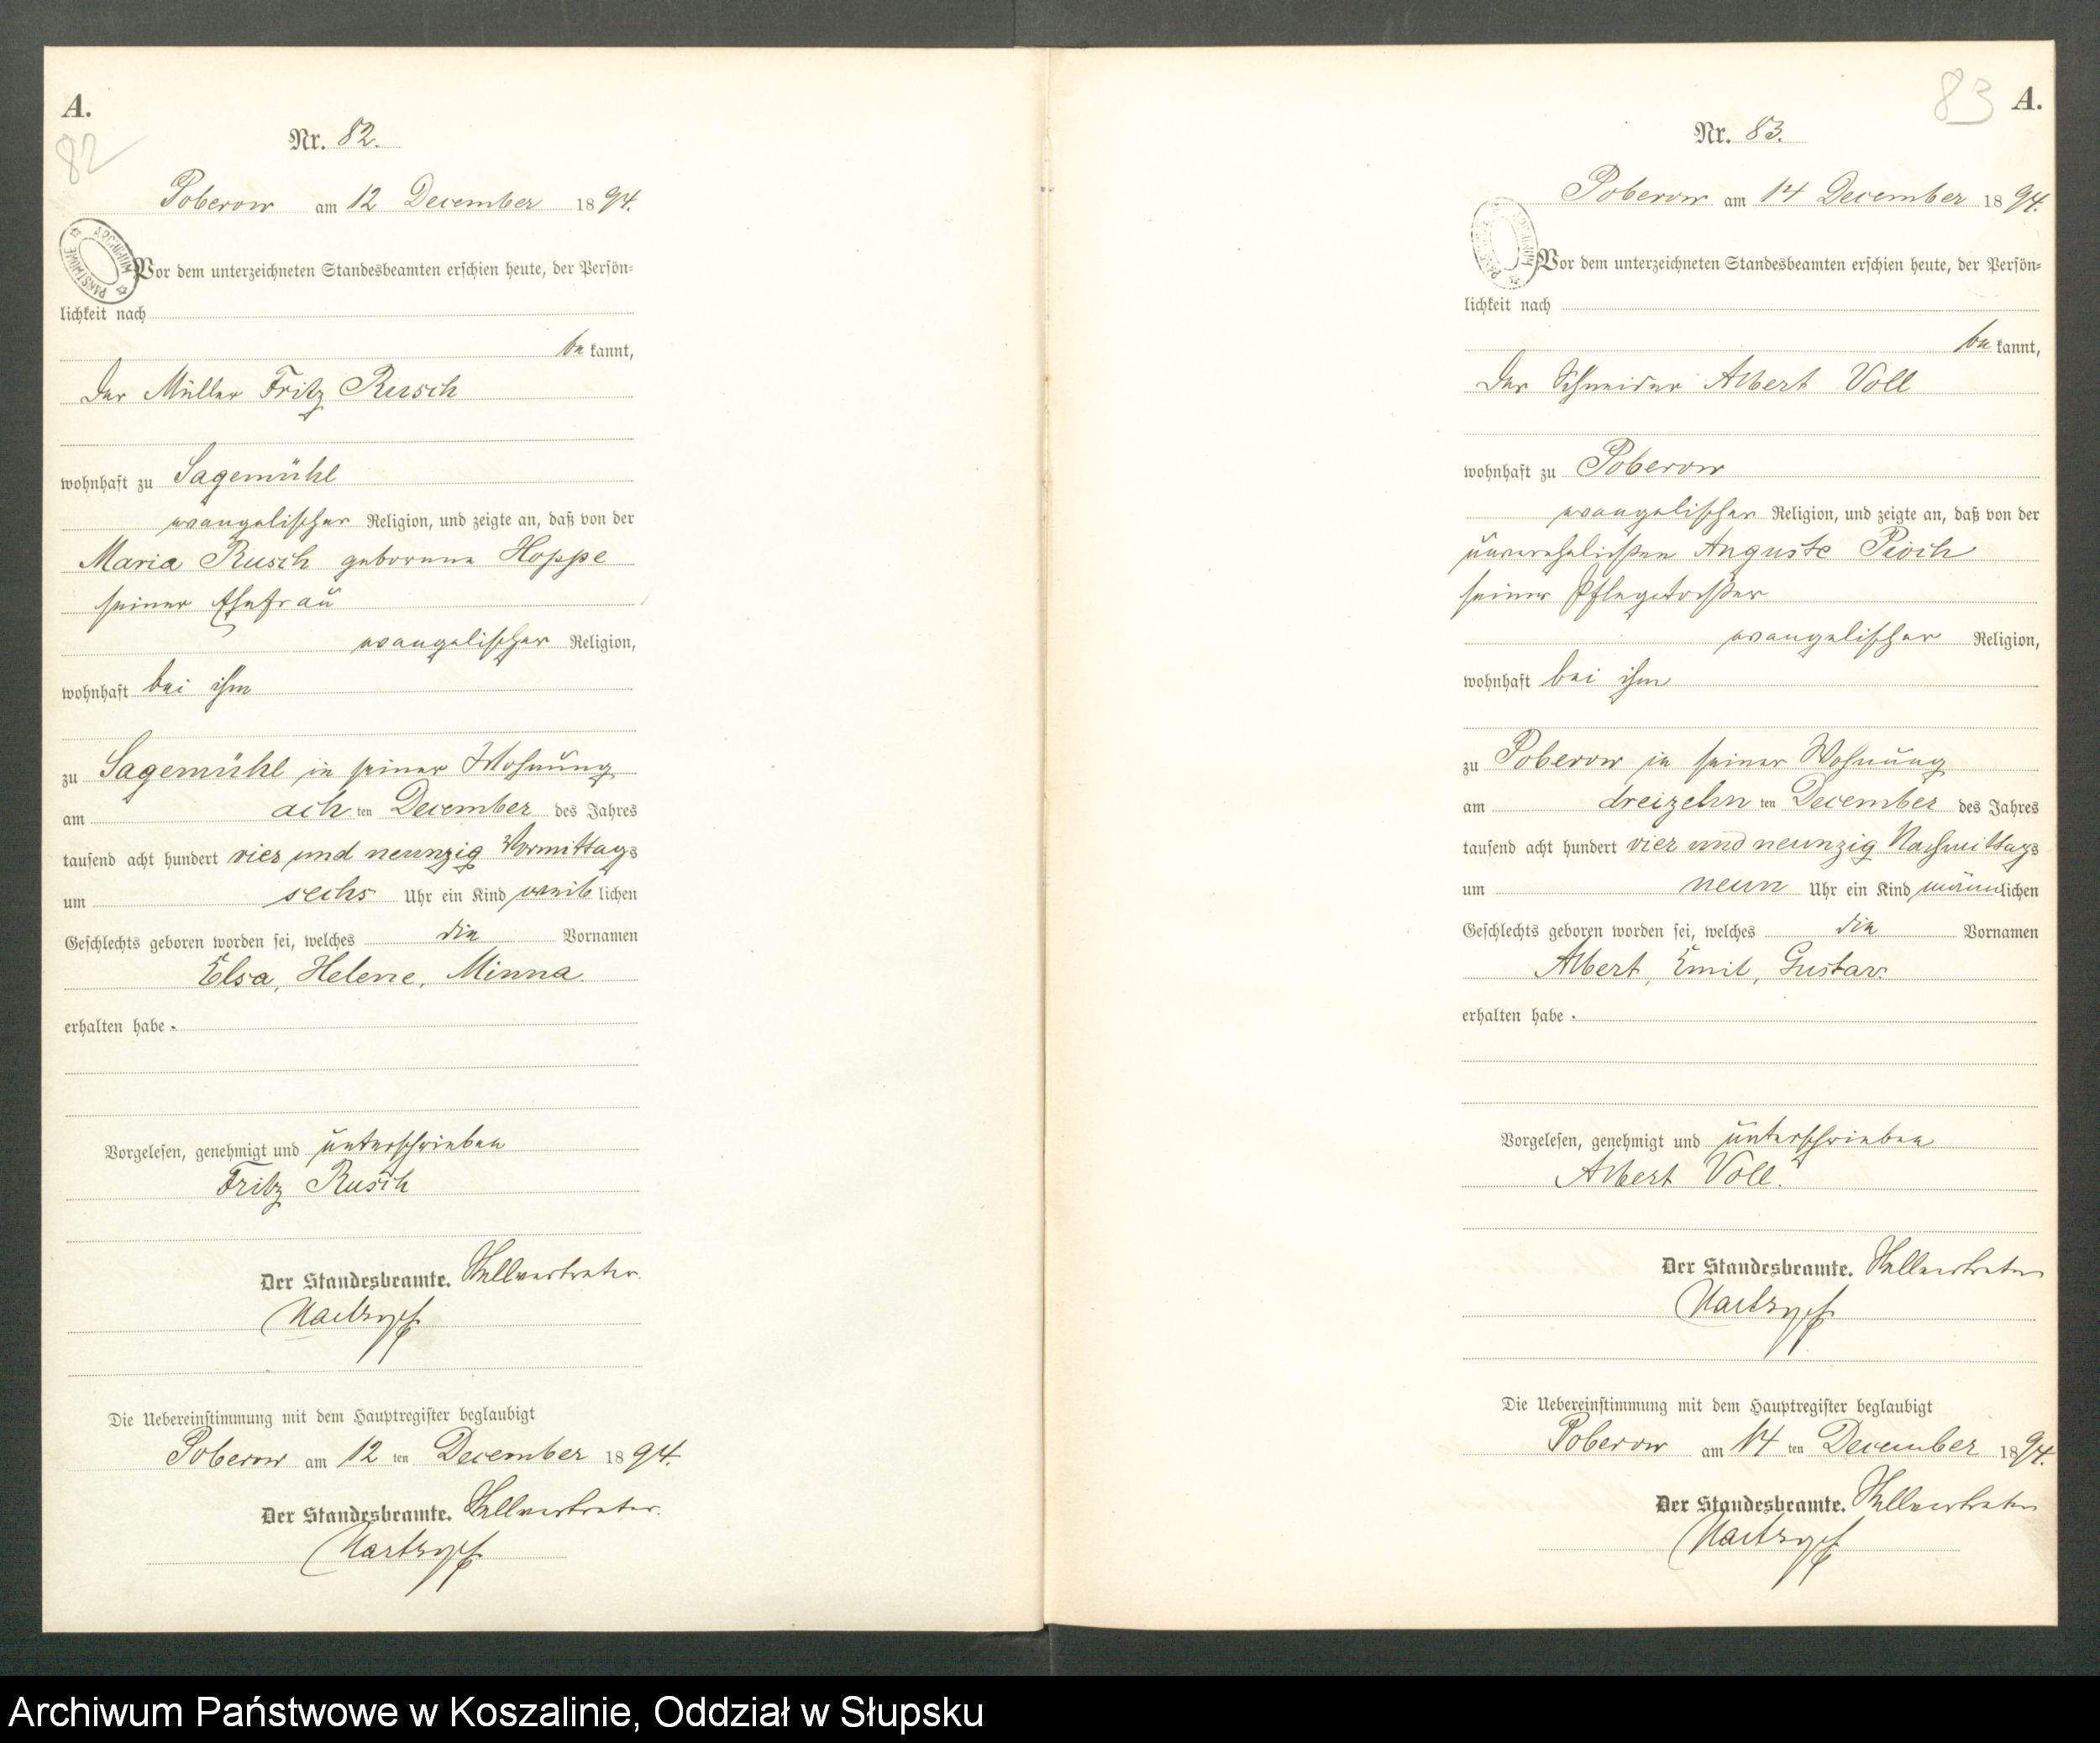 A.
82
Nr. 82.
Poberow am 12 December 1894.
ARCHIWUM PAŃSTWOWE
Vor dem unterzeichneten Standesbeamten erschien heute, der Persön=
lichkeit nach
be kannt,
der Müller Fritz Rusch
wohnhaft zu Sagemühl
evangelischer Religion, und zeigte an, daß von der
Maria Rusch geborene Hoppe
seiner Ehefrau
evangelischer Religion,
wohnhaft bei ihm
zu Sagemühl in seiner Wohnung
am ach ten December des Jahres
tausend acht hundert vier und neunzig Vormittags
um sechs Uhr ein Kind weib lichen
Geschlechts geboren worden sei, welches die Vornamen
Elsa, Helene, Minna
erhalten habe.
Vorgelesen, genehmigt und unterschrieben
Fritz Rusch
Der Standesbeamte. Stellvertreter.
Die Uebereinstimmung mit dem Hauptregister beglaubigt
Poberow am 12 ten December 1894.
Der Standesbeamte. Stellvertreter.
83 A.
Nr. 83.
Poberow am 14 December 1894.
Vor dem unterzeichneten Standesbeamten erschien heute, der Persön=
lichkeit nach
be kannt,
der Schneider Albert Voll
wohnhaft zu Poberow
evangelischer Religion, und zeigte an, daß von der
unverehelichten Auguste Pioch
seiner Pflegetochter
evangelischer Religion,
wohnhaft bei ihm
zu Poberow in seiner Wohnung
am dreizehn ten December des Jahres
tausend acht hundert vier und neunzig Nachmittags
um neun Uhr ein Kind männlichen
Geschlechts geboren worden sei, welches die Vornamen
Albert, Emil, Gustav.
erhalten habe.
Vorgelesen, genehmigt und unterschrieben
Albert Voll.
Der Standesbeamte. Stellvertreter
Die Uebereinstimmung mit dem Hauptregister beglaubigt
Poberow am 14 ten December 1894.
Der Standesbeamte. Stellvertreter
Archiwum Państwowe w Koszalinie, Oddział w Słupsku